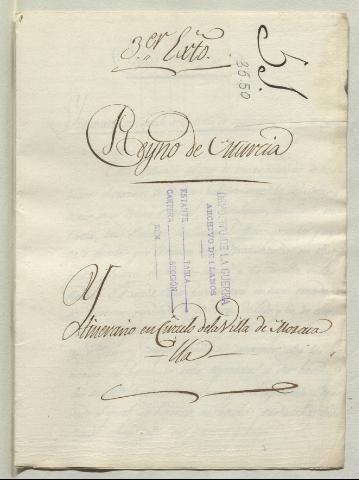 3.er Exto.
35.50
Reyno de Murcia
DEPOSITO DE LA GUERRA
ARCHIVO DE PLANOS
ESTANTE TABLA
CARTERA SECCION
NUM
Y
Itinerario en Circulo de la Villa de Morata
lla